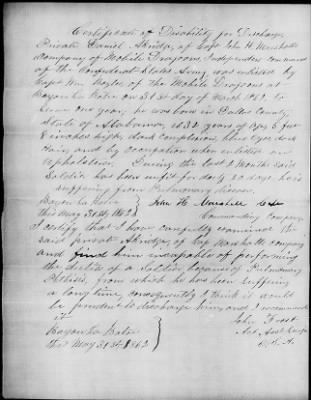 Certificate of Disability for Discharge
Private Daniel Akridge, of Capt John H. Marshalls
Company of Mobile Dragoons, Independent command
of the Confederate States Army was enlisted by
Capt Wm Boyles, of the Mobile Dragoons at
Bayou La Batre on 31st day of March 1862, to
serve one year, he was born in Dallas County
State of Alabama, is 32 years of age, 5 feet
8 inches high, dark complexion, blue eyes, dark
hair, and by occupation when enlisted an
upholsterer. During the last 2 Months said
Soldier has been unfit for duty 20 days. he is
suffering from Pulmonary disease.
Bayou La Batre
this May 31st 1862
John H. Marshall Capt
Commanding Company
I certify that I have carefully examined the
said private Akridge of Cap Marshalls company
and find him incapable of performing
the duties of a Soldier because of Pulmonary
Phthisis, from which he has been suffering
a long time, consequently I think it would
be prudent to discharge him, and I recommend
it
Bayou La Batre
this May 31st 1862
John Frost
Act Asst Surgn
C.S.A.